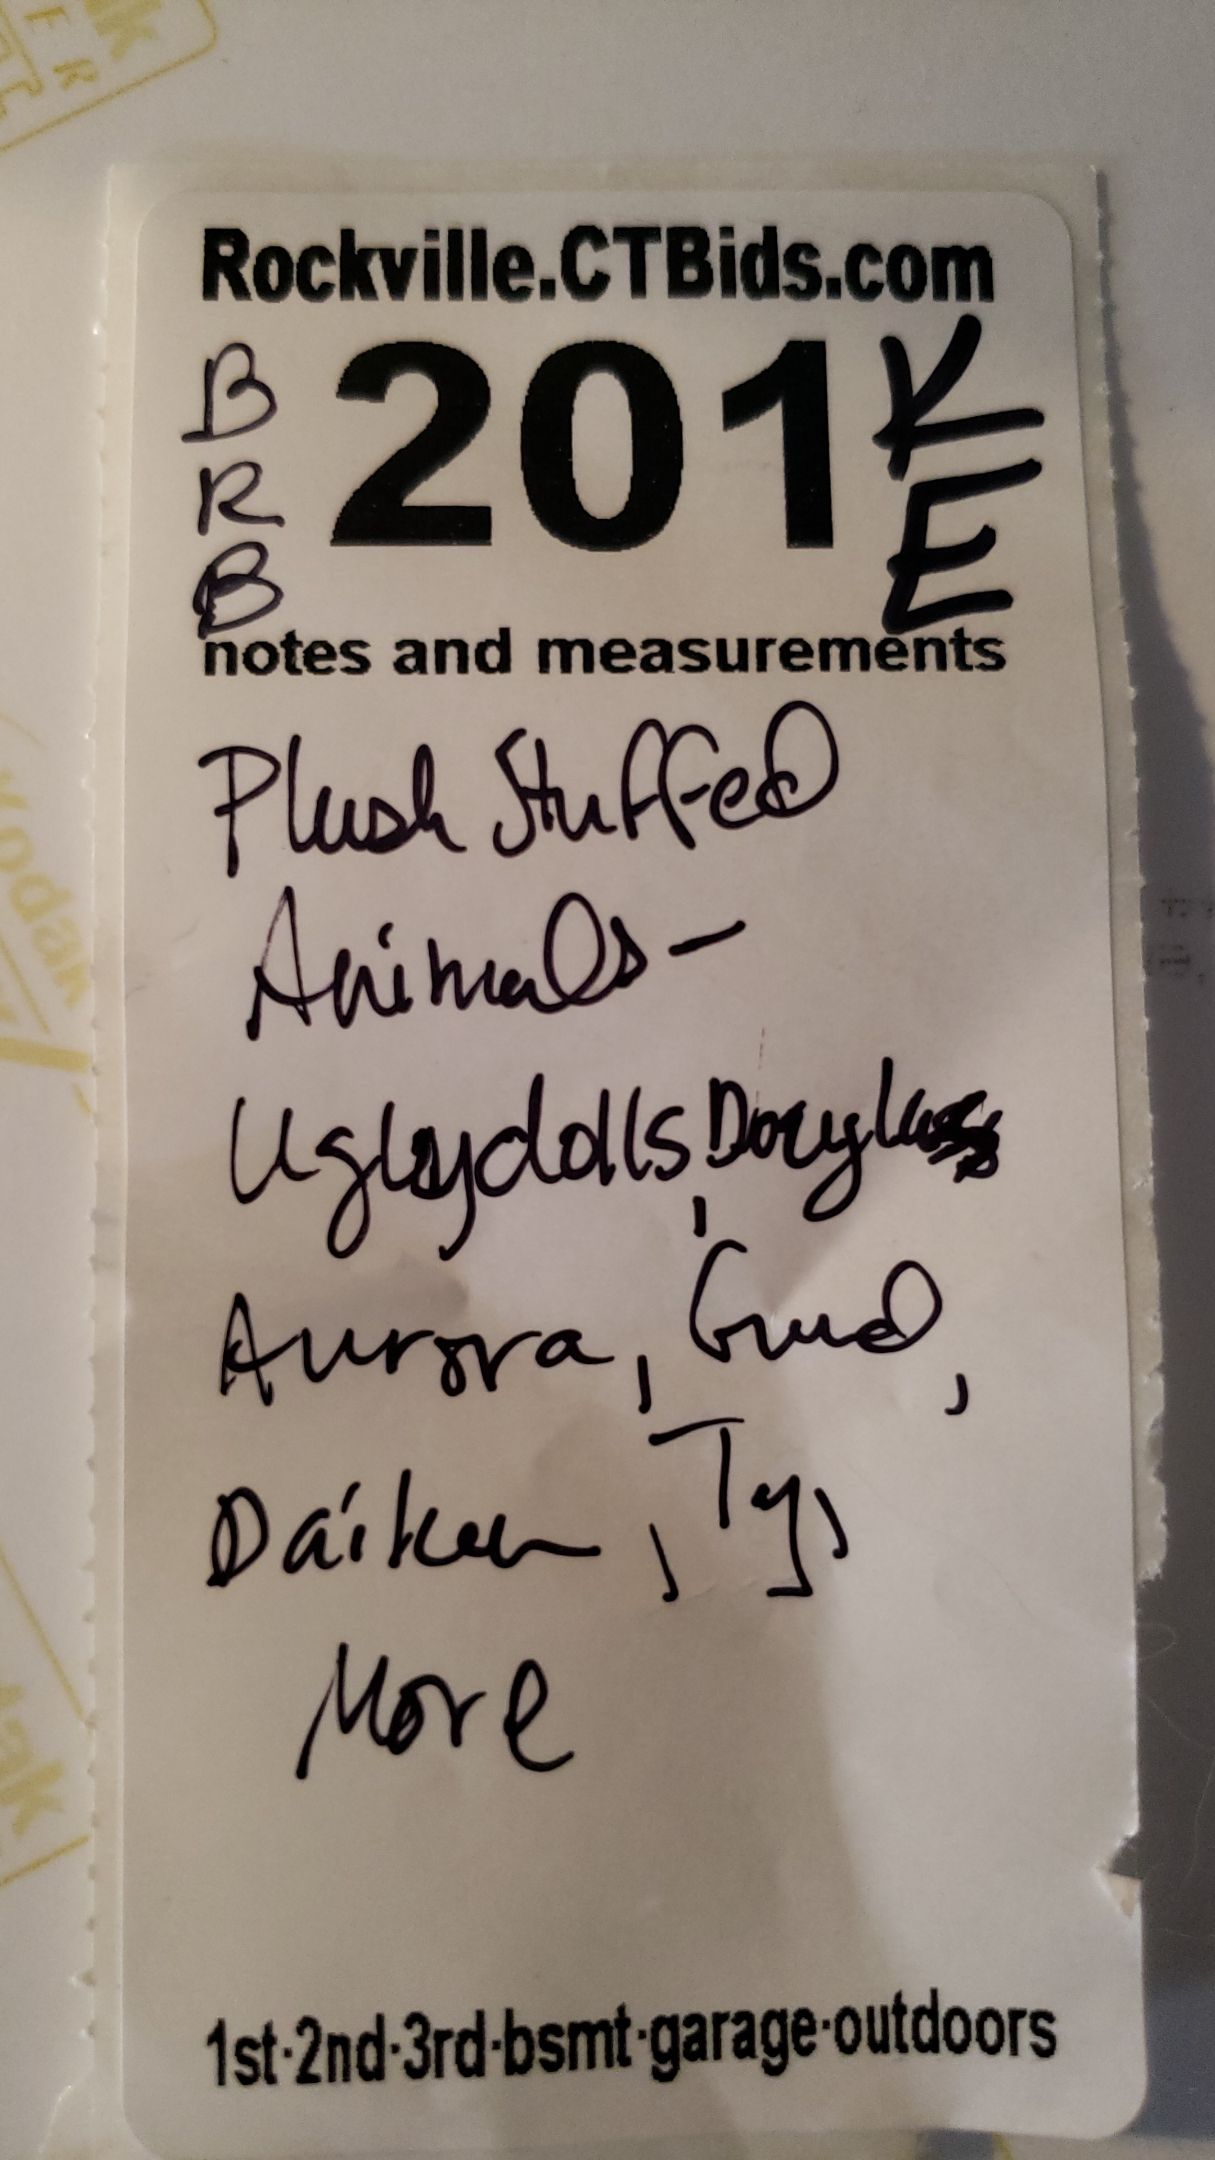 Rockville.CTBids.com
B
R
B
201
KE
notes and measurements
Plush Stuffed
Animals-
Uglydolls, Douglass
Aurora, Gund,
Daiken, Ty,
More
1st·2nd·3rd·bsmt·garage·outdoors
Kodak